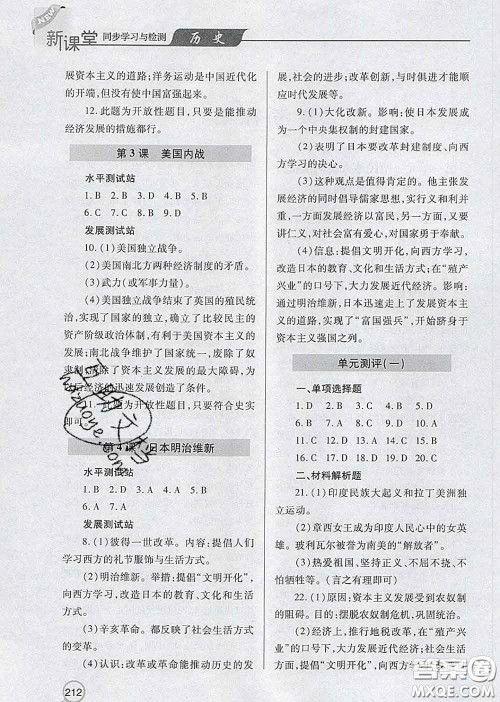 NEW
新课堂 同步学习与检测 历史
展资本主义的道路；洋务运动是中国近代化
的开端，但没有使中国富强起来。
12. 此题为开放性题目，只要是能推动
经济发展的措施都行。
第3课 美国内战
水平测试站
1. B 2. B 3. D 4. B 5. D
6. C 7. C 8. D 9. D
发展测试站
10. (1)美国独立战争。
(2)美国南北方两种经济制度的矛盾。
(3)武力（或军事力量）。
(4)美国独立战争结束了英国的殖民统
治，实现了国家的独立，确立了比较民主的
资产阶级政治体制，有利于美国资本主义的发
展；南北战争维护了国家统一，废除了奴
隶制，扫除了资本主义发展的最大障碍，为
以后经济的迅速发展创造了条件。
11. 此题为开放性题目，只要符合史实
即可。
第4课 日本明治维新
水平测试站
1. B 2. A 3. D 4. A 5. B
6. A 7. A
发展测试站
8. (1)彼得一世改革。内容：提倡人们
学习西方的礼节服饰与生活方式。
(2)明治维新。举措：提倡“文明开化”，
向西方学习，改造日本的教育、文化和生活
方式。
(3)辛亥革命。都反映了社会生活方式
的变革。
(4)认识：改革或革命能推动历史的发
212
展、社会的进步；改革创新，与时俱进才能顺
应时代发展等。
9. (1)大化改新。影响：使日本发展成
为一个中央集权制的封建国家。
(2)表明了日本要改革封建制度、向西
方学习的决心。
(3)这种观点是值得肯定的。他主张发
展经济的同时倡导儒家思想，实行义利并
举，一方面发展经济以富民，另一方面，又要
讲仁义，对社会富有爱心，对国家勇于奉献。
(4)信息：提倡文明开化，向西方学习，
改造日本的教育、文化和生活方式；在“殖产
兴业”的口号下，大力发展近代经济。影响：
通过明治维新，日本迅速走上了发展资本主
义的道路，实现了“富国强兵”，开始跻身于
资本主义强国之列。
单元测评（一）
一、单项选择题
1. D 2. A 3. C 4. D 5. D
6. C 7. B 8. D 9. A 10. B
11. B 12. C 13. C 14. A 15. C
16. D 17. A 18. B 19. B 20. C
二、材料解析题
21. (1)印度民族大起义和拉丁美洲独
立运动。
(2)章西女王成为印度人民心中的女英
雄。玻利瓦尔被誉为南美的“解放者”。
(3)热爱祖国、坚持正义、不屈不挠、不
怕牺牲等。（言之有理即可）
22. (1)原因：资本主义发展受到农奴制
的阻碍。目的：摆脱农奴制危机，巩固统治。
(2)经济上，推行地税改革，在“殖产兴
业”的口号下，大力发展近代经济；社会生活
上，提倡“文明开化”，向西方学
答案圈
MXQE.COM